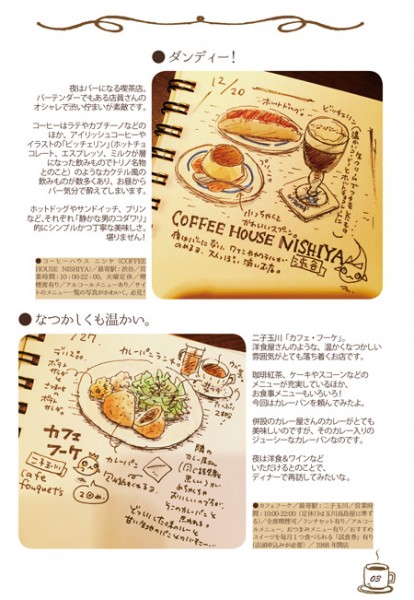 ● ダンディー！
夜はバーになる喫茶店。
バーテンダーでもある店員さんの
オシャレで渋い佇まいが素敵です。
コーヒーはラテやカプチーノなどの
ほか、アイリッシュコーヒーや
イラストのビッチェリン(ホットチョ
コレート、エスプレッソ、ミルクが層
になった飲みものでトリノ名物
とのこと)のようなカクテル風の
飲みものが数多くあり、お昼から
バー気分で酔えてしまいます。
ホットドッグやサンドイッチ、プリン
など、それぞれ「静かな男のコダワリ」
的にシンプルかつ丁寧な美味しさ。
堪りません！
●コーヒーハウス ニシヤ (COFFEE
HOUSE NISHIYA)／最寄駅：渋谷／営
業時間：10：00-22：00、火曜定休／喫
煙席有り／アルコールメニューあり／サイ
トのメニュー一覧の写真がかわいく、必見！
12/20
ホットドッグ
ビッチェリン
プリン
COFFEE HOUSE NISHIYA
渋谷
● なつかしくも温かい。
二子玉川「カフェ・フーケ」。
洋食屋さんのような、温かくなつかしい
雰囲気がとても落ち着くお店です。
珈琲紅茶、ケーキやスコーンなどの
メニューが充実しているほか、
お食事メニューもいろいろ！
今回はカレーパンを頼んでみたよ。
併設のカレー屋さんのカレーがとても
美味しいのですが、そのカレー入りの
ジューシーなカレーパンなのです。
夜は洋食&ワインなど
いただけるとのことで、
ディナーで再訪してみたいな。
●カフェフーケ／最寄駅：二子玉川／営業時
間：10:00-22:00 (定休日は玉川高島屋に準ず
る)／全席喫煙可／ランチセット有り／アルコー
ルメニュー、おつまみメニュー有り／おすすめ
スイーツを毎月1つ食べられる「試食券」有り
(店頭申込みが必要)／1986年開店
/27
カレーパンランチ
カフェ
フーケ
二子玉川
cafe
fouquet's
カレーパン
03